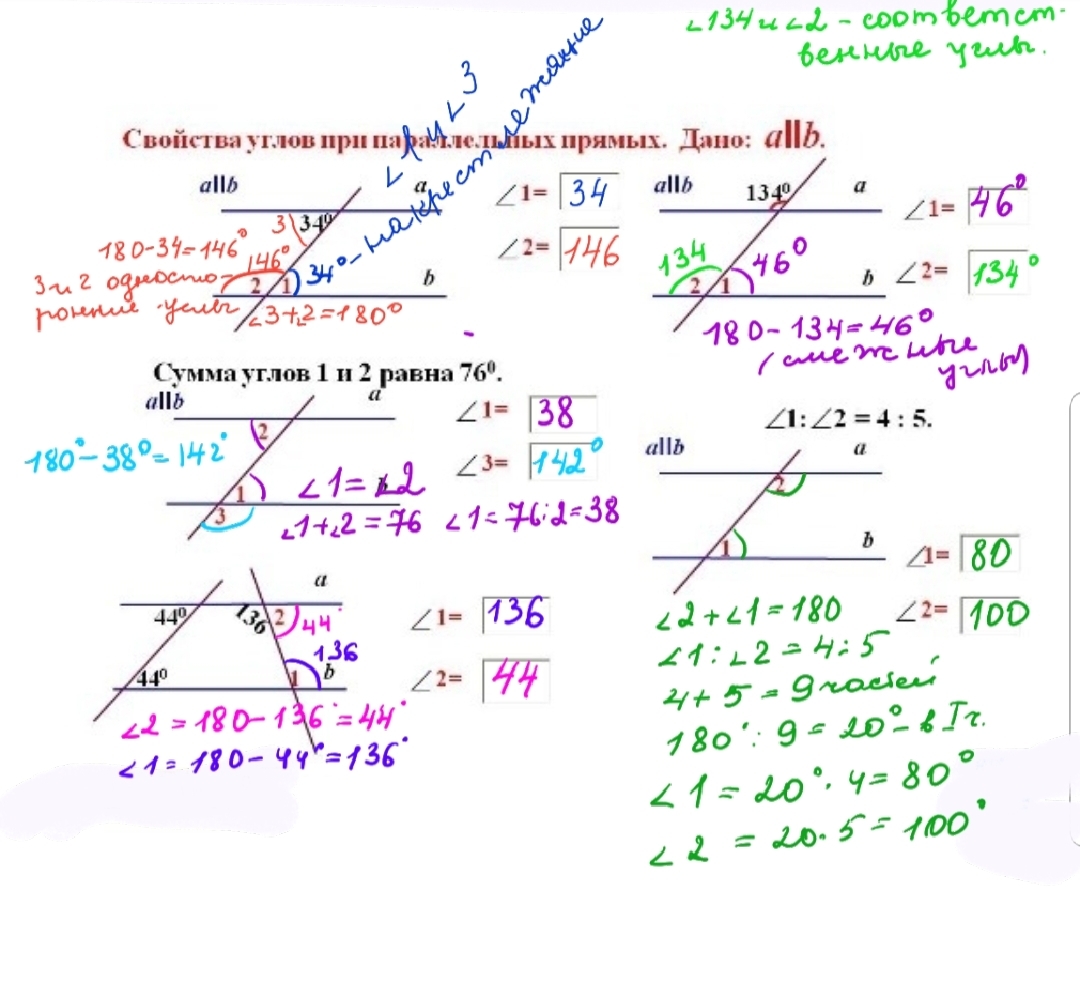 ∠134 и ∠2 - соответст-
венные углы.
∠1 и ∠3
накрест лежащие
Свойства углов при параллельных прямых. Дано: a||b.
a||b
a
3
34⁰
180-34=146°
146°
3 и 2 односто-
ронние углы
2
1
34°
b
∠3+∠2=180°
∠1= 34
∠2= 146
a||b
134⁰
a
134
46°
2
1
b
∠1= 46°
∠2= 134°
180-134=46°
(смежные
углы)
Сумма углов 1 и 2 равна 76⁰.
a||b
a
2
180°-38°=142°
1
3
∠1=∠2
∠1+∠2=76 ∠1=76:2=38
∠1= 38
∠3= 142°
∠1:∠2 = 4 : 5.
a||b
a
2
1
b
∠1= 80
∠2= 100
∠2+∠1=180
∠1:∠2=4:5
4+5=9 частей
180°:9=20°-в 1ч.
∠1=20°·4=80°
∠2=20·5=100°
a
44⁰
136
2
44°
136
44⁰
1
b
∠1= 136
∠2= 44
∠2=180-136°=44°
∠1=180-44°=136°